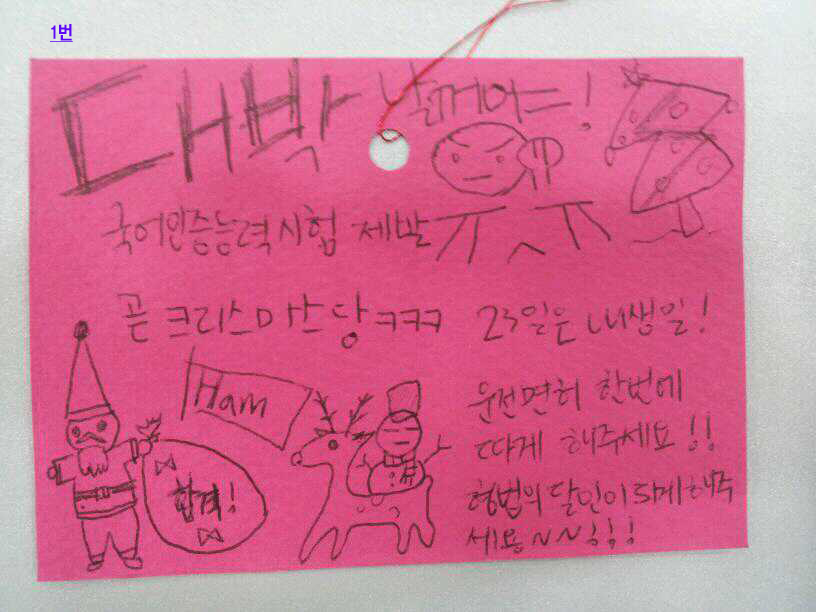 1번
대박 날꺼야!
국어인증능력시험 제발 ㅠㅅㅠ
곧 크리스마스당 ㅋㅋㅋ 23일은 내생일!
Ham
운전면허 한번에
따게 해주세요!!
합격!
형법의 달인이 되게 해주
세용~~!!!